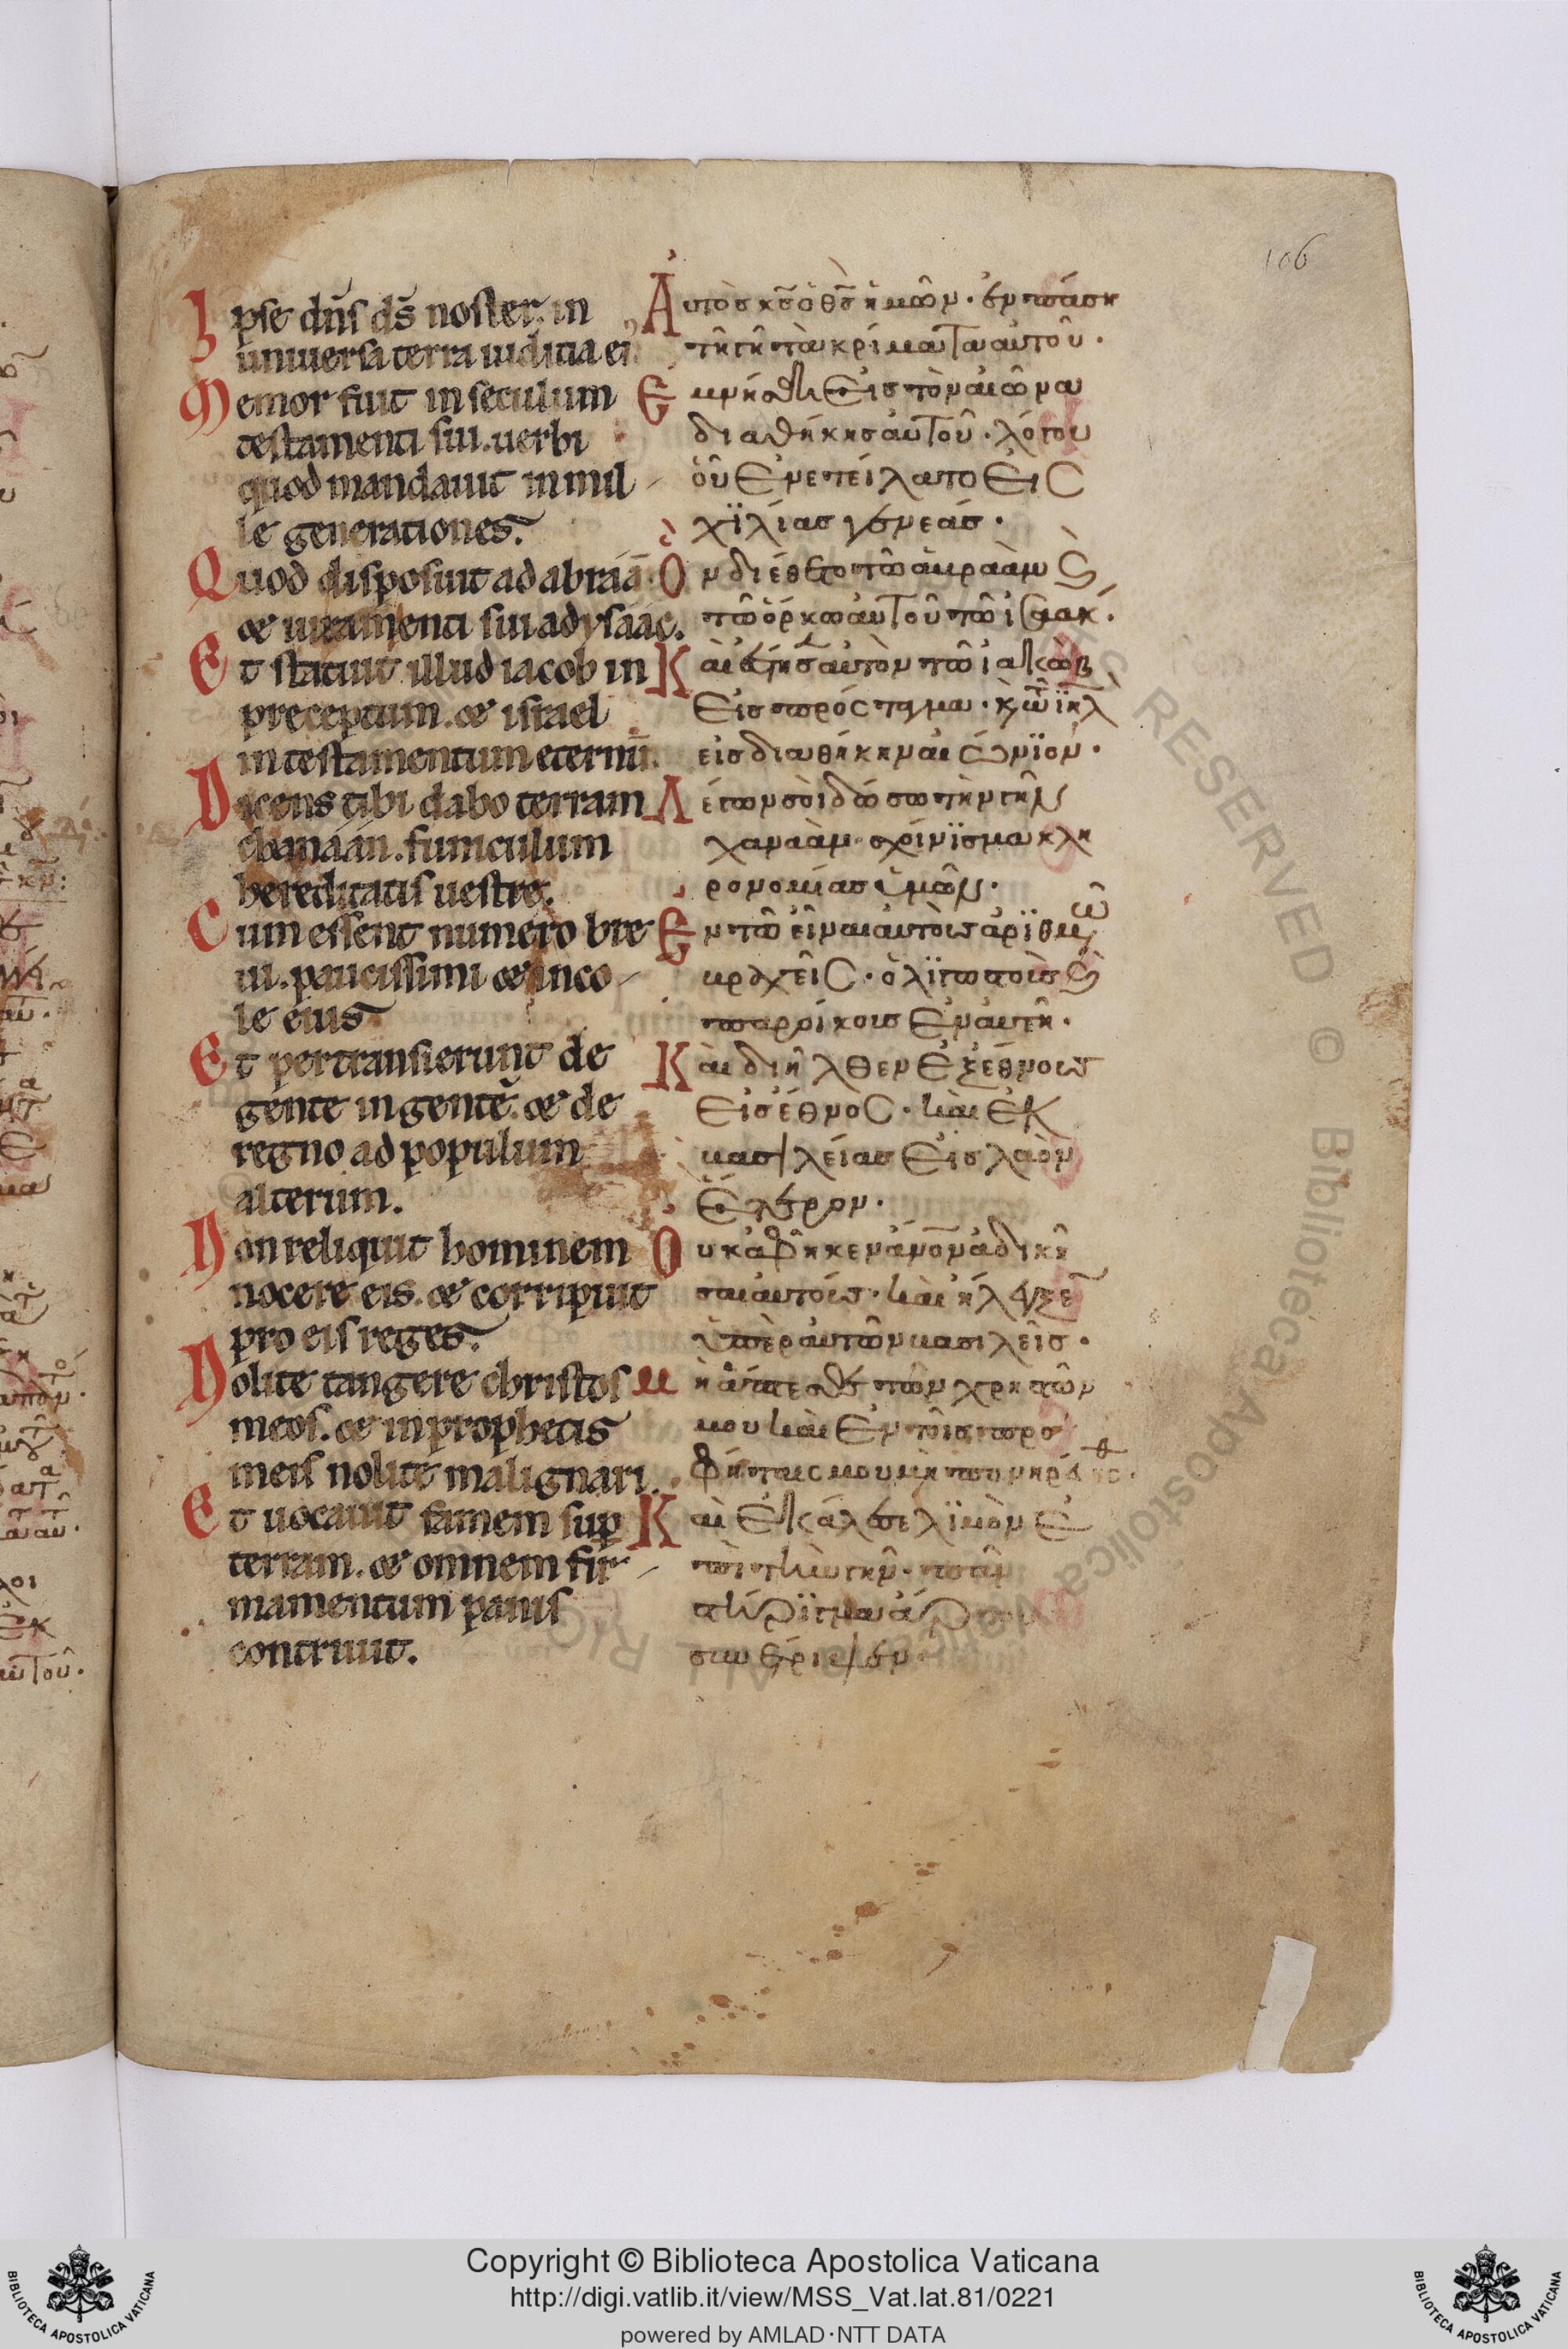 106
Ipse dn̄s ds̄ noster. in
uniuersa terra iudicia ei᾽
Memor fuit in seculum
testamenti sui. uerbi
quod mandauit in mil-
le generationes.
Quod disposuit ad abraā.
& iuramenti sui ad ysáác.
Et statuit illud iacob in
preceptum. & israel
in testamentum eternū.
Dicens tibi dabo terram
chanáán. funiculum
hereditatis uestre.
Cum essent numero bre
ui. paucissimi & inco-
le eius
Et pertransierunt de
gente in gentē. & de
regno ad populum
alterum.
Non reliquit hominem
nocere eis. & corripuit
pro eis reges.
Nolite tangere christos
meos. & in prophetis
meis nolite malignari.
Et uocauit famem sup̱
terram. & omnem fir-
mamentum panis
contriuit.
Ἀυτὸσ κσ̄ ὁ θσ̄ ἡμῶν· ἐν πάση
τῆ γῆ τὰ κρίματα αὐτοῦ·
Ἐμνήσθη εἰσ τὸν αἰῶνα
διαθήκησ αὐτοῦ· λόγου
οὗ ἐνετείλατο εἰς
χϊλίασ γενεάσ·
Ὃν διέθετο τῶ ἀβραὰμ ϗ
τῶ ὅρκω αὐτοῦ τῶ ἰσαακ·
Κὰι ἔστησ αὐτὸν τῶ ἰακὼβ
εἰσ πρόςταγμα· ϗ τῶ ϊηλ
εἰσ διαθήκην αἰώνϊον·
Λέγων σὸι δώσω τὴν γῆν
χαναὰμ σχόινϊσμα κλη
ρονομίασ ὑμῶν·
Ἐν τῶ εἶναι ἀυτὸισ ἀρϊθμῶ
βραχεῖς· ὀλϊγωστοὺσ ϗ
παρόικουσ ἐν ἀυτῆ·
Κὰι διῆλθεν ἐξ έθνουσ
εἰσ έθνος· κὰι ἐκ
βασιλείασ εἰσ λαὸν
ἕτερον·
Ὀυκ ἀφῆκεν ἀνο̄ν ἀδικῆ
σαι ἀυτόυσ· κὰι ἤλεγξε
ὑπὲρ ἀυτῶν βασιλεῖσ·
μὴ ἅπτεσθε τῶν χρηστῶν
μου κὰι ἐν τοῖσ προ
φήταις μου μὴ πονηρε
Κὰι ἐκάλεσε λϊμὸν ἐ
πὶ τὴν γην· πᾶν
στήρϊγμα ἄρτου
συνέτριψεν
Copyright © Biblioteca Apostolica Vaticana
http://digi.vatlib.it/view/MSS_Vat.lat.81/0221
powered by AMLAD·NTT DATA